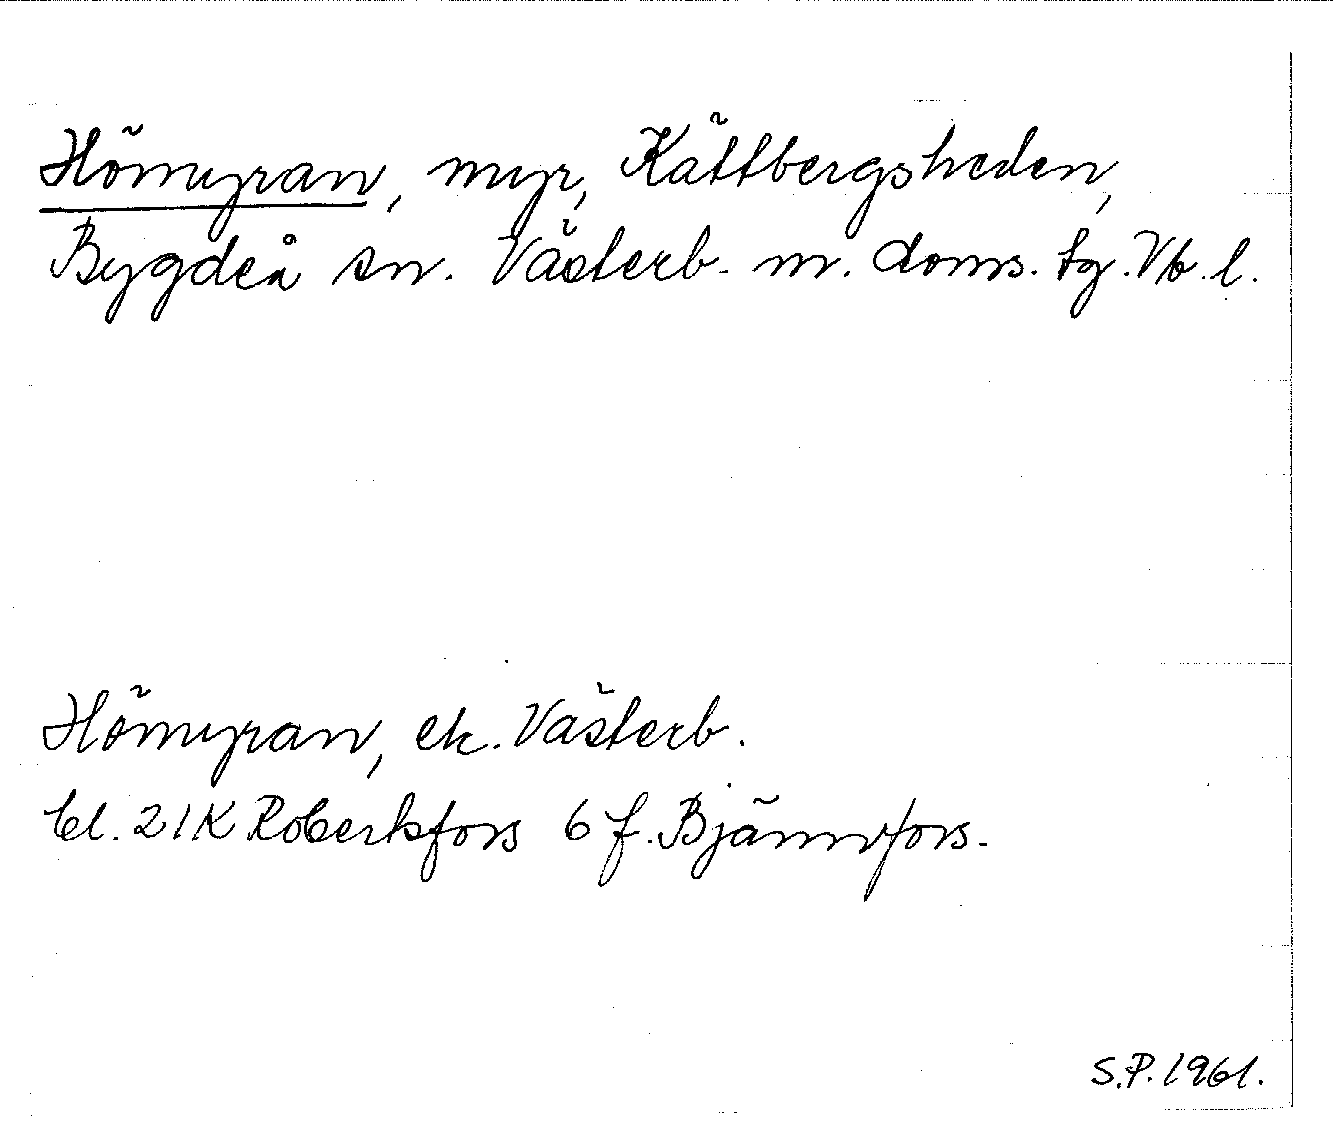 Hömyran, myr, Kättbergsheden,
Bygdeå sn. Västerb. m. doms. tg. Vb. l.
Hömyran, ek. Västerb.
bl. 21K Robertsfors 6 f. Bjännfors.
S.P. 1961.